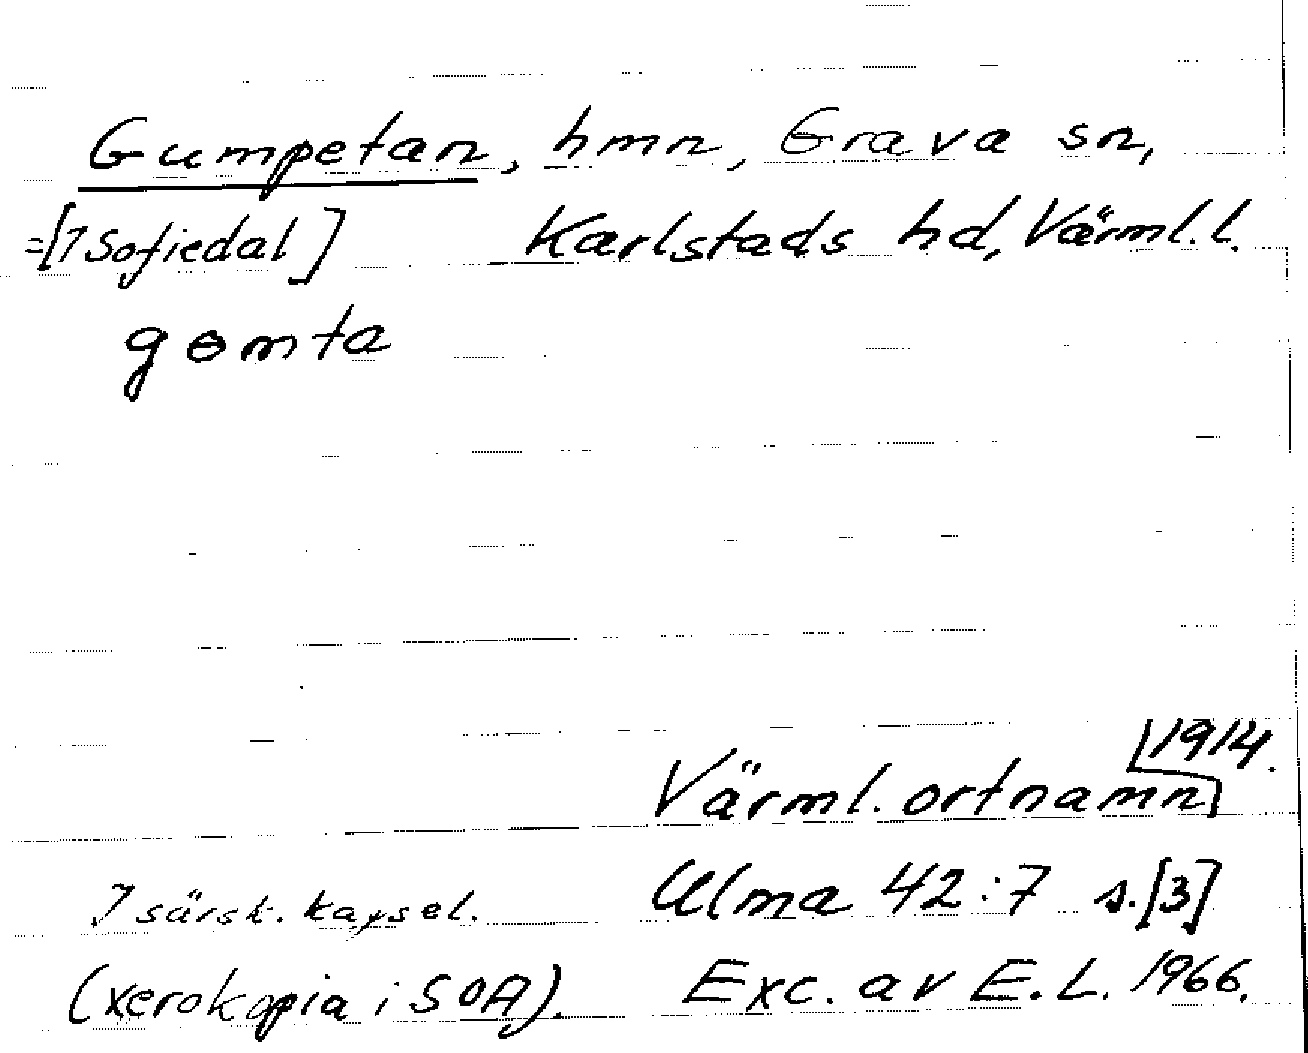 Gumpetan, hmn, Grava sn,
=[1 Sofiedal] Karlstads hd, Värml. l.
gomta
1914.
Värml. ortnamn
I särsk. kapsel. Ulma 42:7 s. [3]
(xerokopia i SOA). Exc. av E. L. 1966.